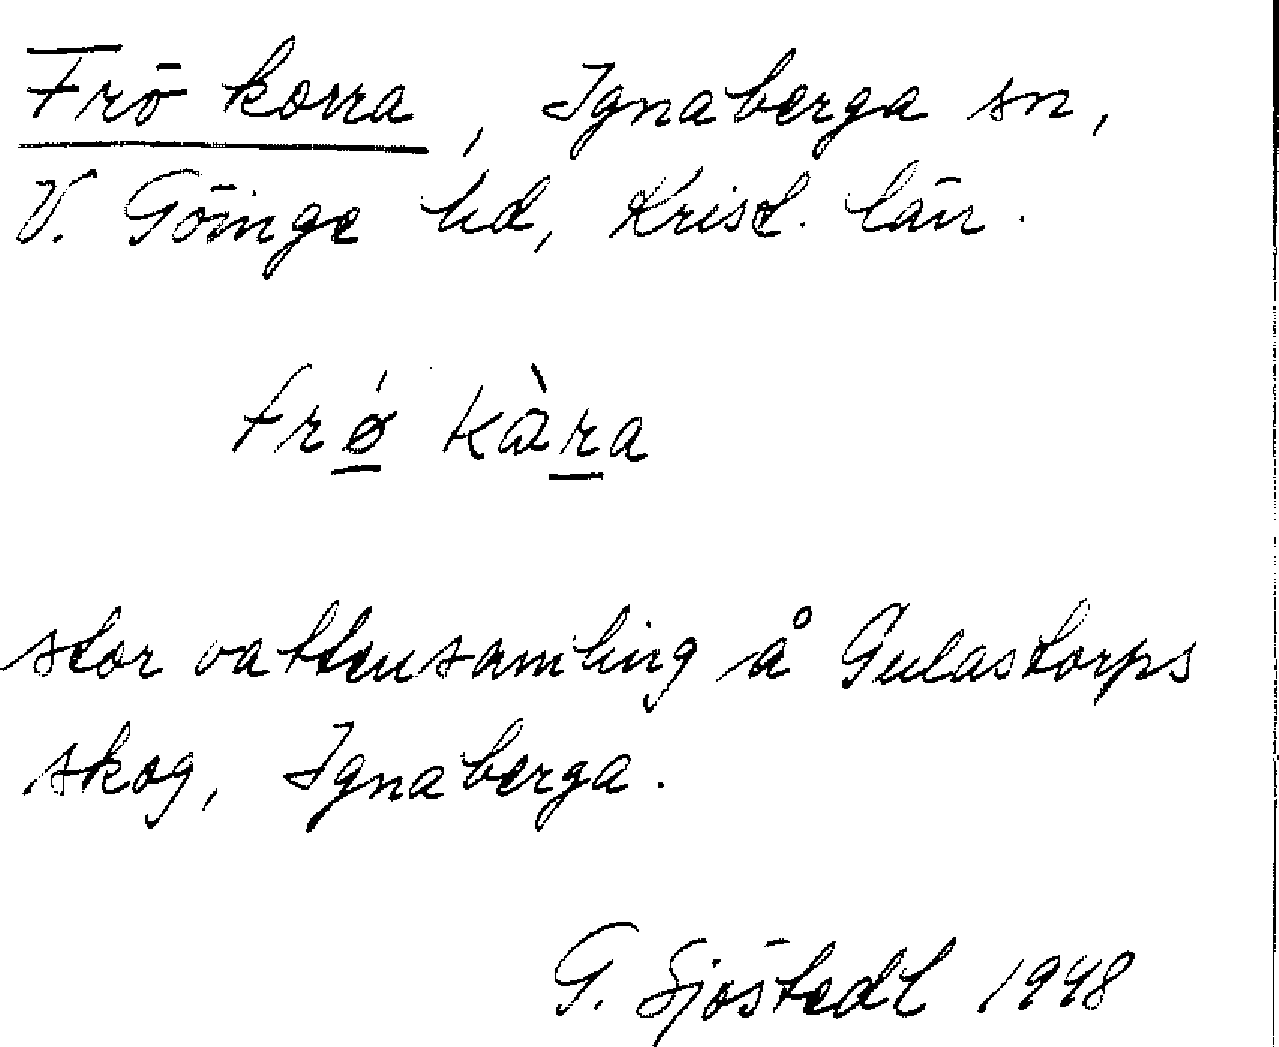 Frö korra, Ignaberga sn,
V. Göinge hd, Krist. län.
frǿ kàra
stor vattensamling å Gulastorps
skog, Ignaberga.
G. Sjöstedt 1948